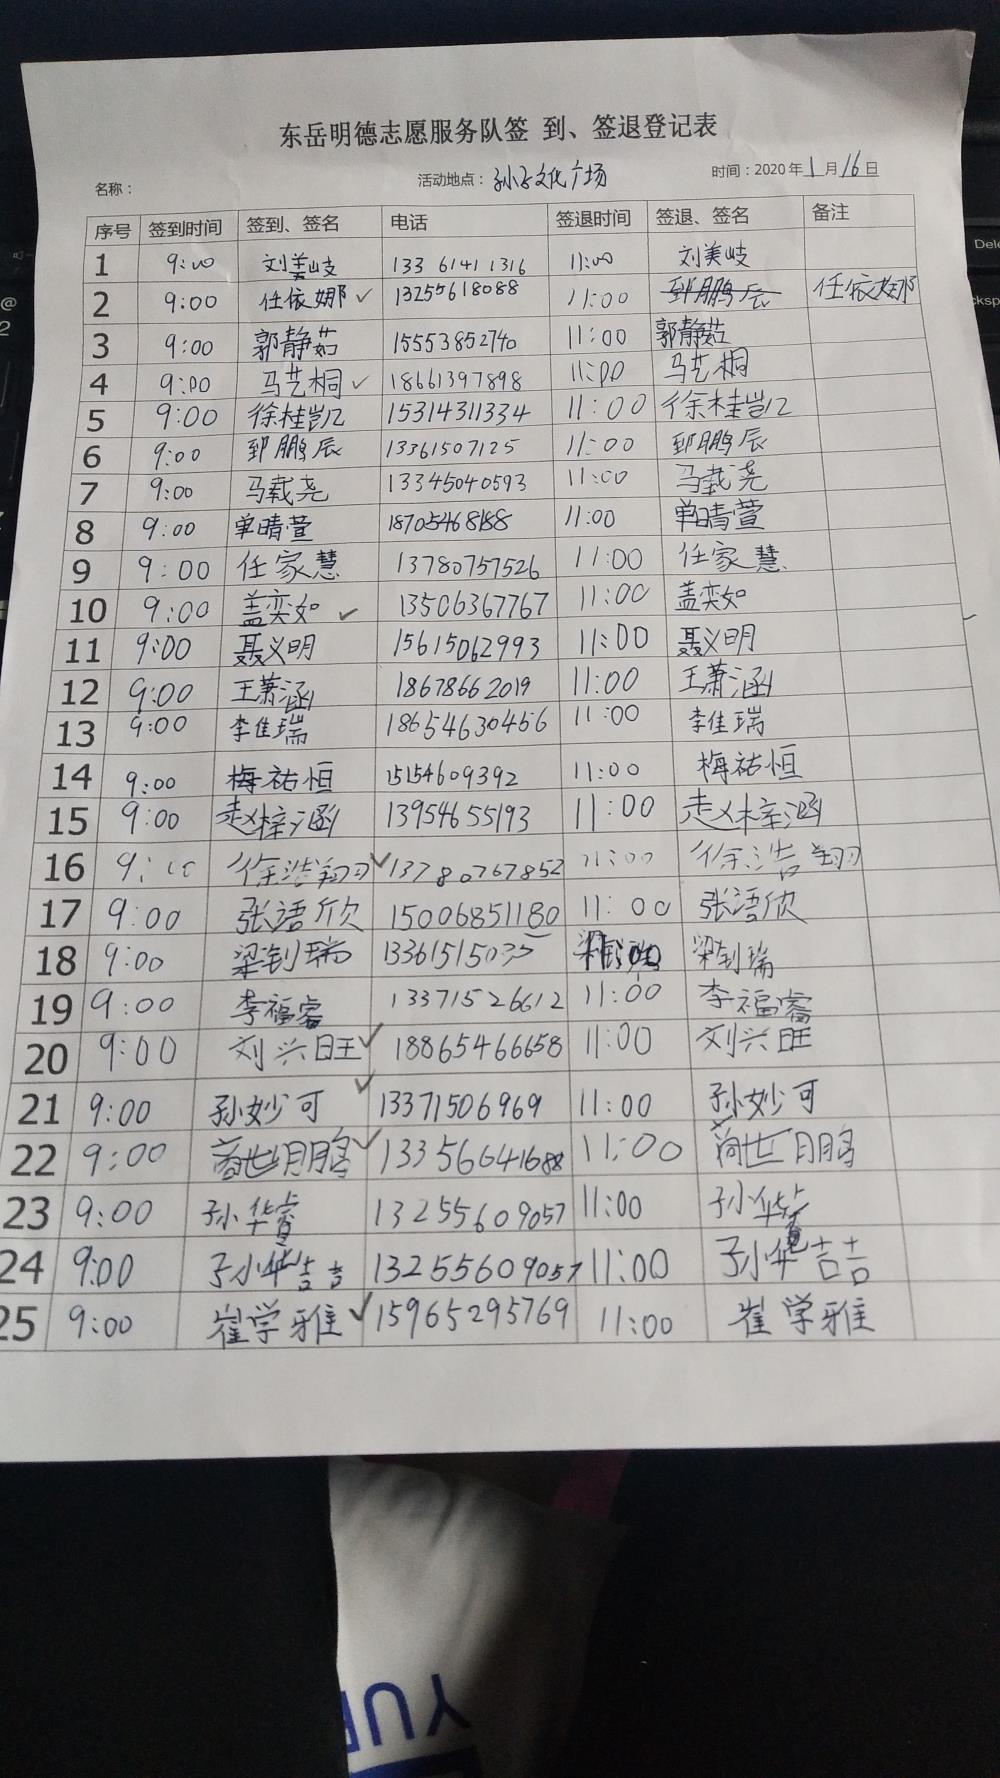 东岳明德志愿服务队签 到、签退登记表
名称： 活动地点：孙子文化广场 时间：2020年1月16日
序号 签到时间 签到、签名 电话 签退时间 签退、签名 备注
1 9:00 刘美岐 13361411316 11:00 刘美岐
2 9:00 任依娜 ✓ 13255618088 11:00 郅鹏辰 任依娜
3 9:00 郭静茹 15553852740 11:00 郭静茹
4 9:00 马艺桐 ✓ 18661397898 11:00 马艺桐
5 9:00 徐桂凯 15314311334 11:00 徐桂凯
6 9:00 郅鹏辰 13361507125 11:00 郅鹏辰
7 9:00 马载尧 13345040593 11:00 马载尧
8 9:00 单晴萱 18705468188 11:00 单晴萱
9 9:00 任家慧 13780757526 11:00 任家慧
10 9:00 盖奕如 ✓ 13506367767 11:00 盖奕如
11 9:00 聂义明 15615062993 11:00 聂义明
12 9:00 王萧涵 18678662019 11:00 王萧涵
13 9:00 李佳瑞 18654630456 11:00 李佳瑞
14 9:00 梅祐恒 15154609392 11:00 梅祐恒
15 9:00 赵梓涵 13954655193 11:00 赵梓涵
16 9:00 徐浩翔 ✓ 13780767852 11:00 徐浩翔
17 9:00 张语欣 15006851180 11:00 张语欣
18 9:00 梁钊瑞 梁钊瑞
19 9:00 李福睿 13371526612 11:00 李福睿
20 9:00 刘兴旺 ✓ 18865466658 11:00 刘兴旺
21 9:00 孙妙可 ✓ 13371506969 11:00 孙妙可
22 9:00 蔺世鹏 ✓ 13356641688 11:00 蔺世鹏
23 9:00 孙华睿 13255609057 11:00 孙华
24 9:00 孙华喆 13255609057 11:00 孙华喆
25 9:00 崔学雅 ✓ 15965295769 11:00 崔学雅